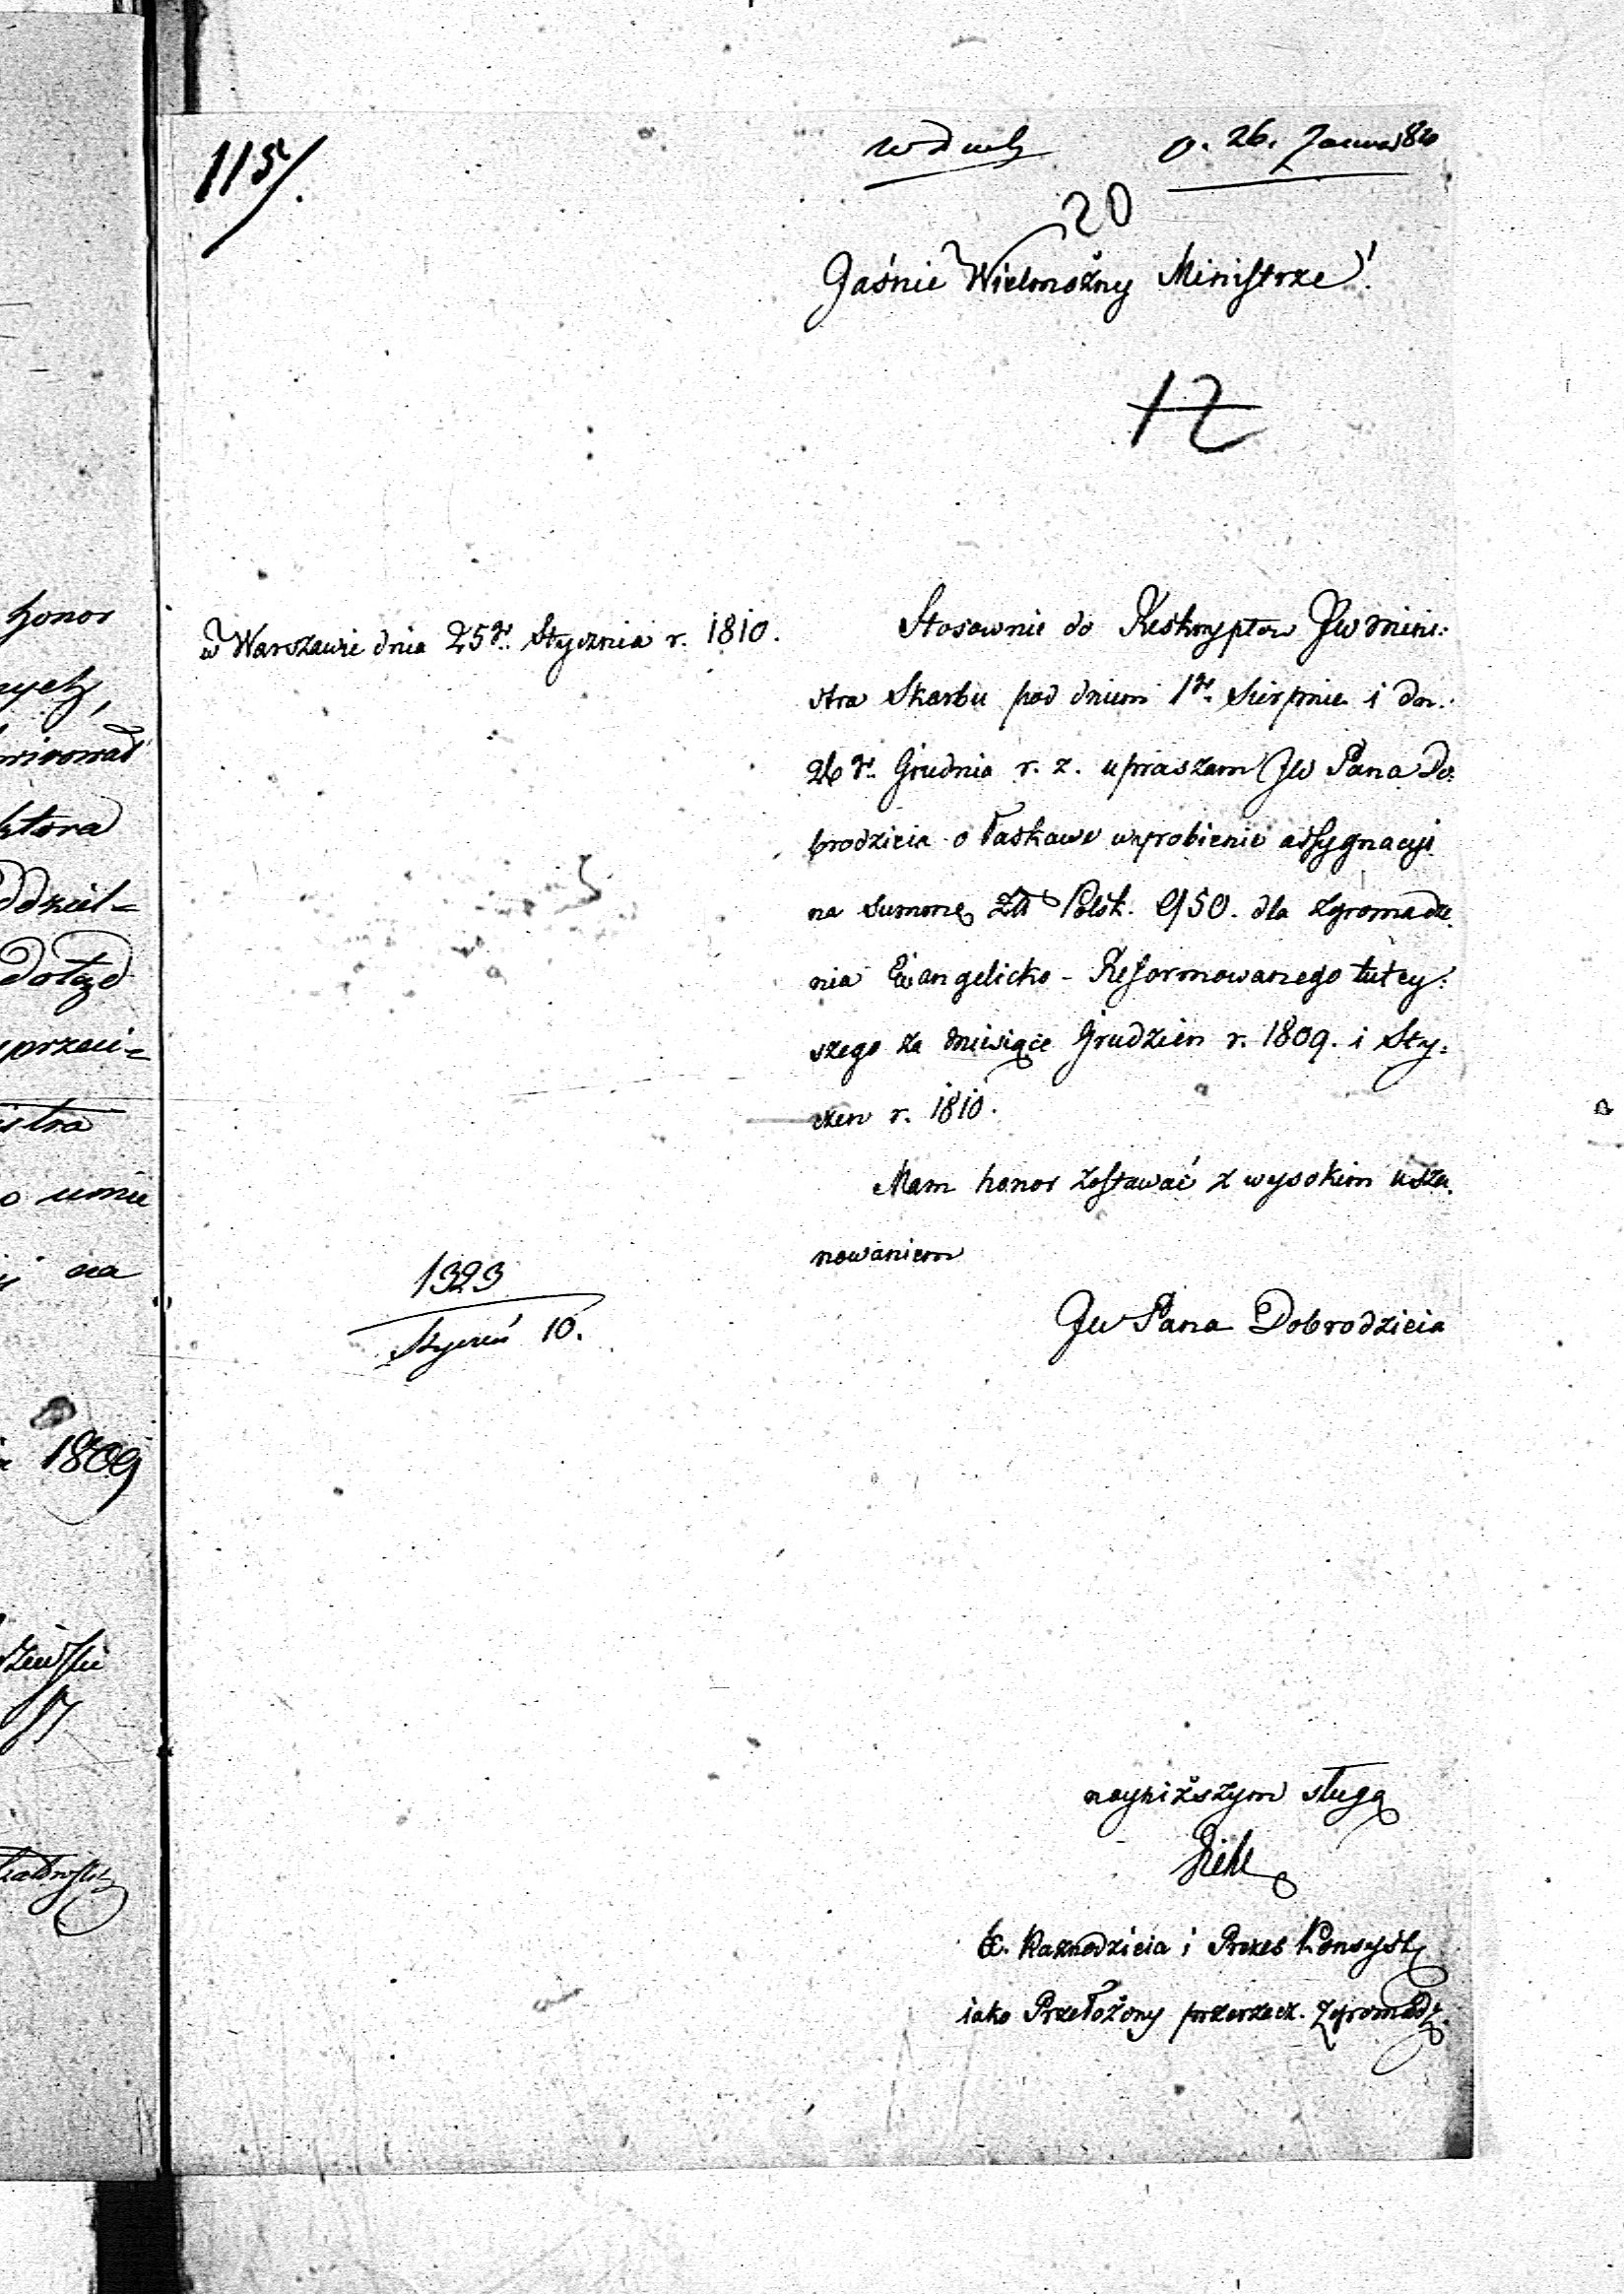 115/.
26. Janua 1810
20
Jaśnie Wielmożny Ministrze!
12
w Warszawie dnia 25go Stycznia r. 1810.
Stosownie do Reskryptow JW Mini:
stra Skarbu pod dniem 1go Sierpnia i dn.
26go Grudnia r. z. upraszam JW Pana Do:
brodzieia o łaskawe wyrobienie assygnacyi
na summę Zł Polsk. 950. dla zgromadze
nia Ewangelicko - Reformowanego tutey:
szego za miesiące Grudzien r. 1809. i Sty:
czen r. 1810.
Mam honor zostawać z wysokim usza.
nowaniem
JW Pana Dobrodzieia
1323
Styczeń 10.
nayniższym sługą
X. Kaznodzieia i Prezes Konsyst
iako Przełożony przerzecz. Zgromadz.
honor
nych,
ktora
oddziel=
dotąd
przeci=
istra
o umie
na
1809